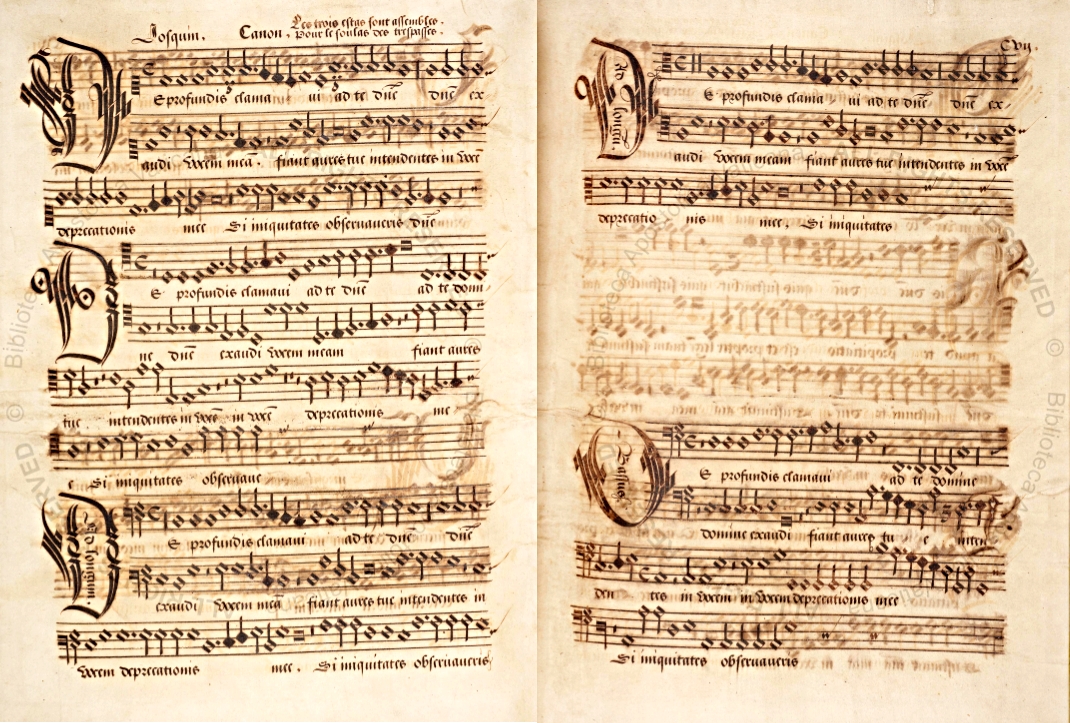 Josquin. Canon. Les trois estas sont assembles.
Pour le soulas des trespasses.
E profundis clama ui ad te dnē dnē ex
audi vocem meā. fiant aures tue intendentes in vocē
deprecationis mee Si iniquitates obseruaueris dnē
E profundis clamaui ad te dnē ad te domi
ne dnē exaudi vocem meam fiant aures
tue intendentes in vocē in vocē deprecationis me
e Si iniquitates obseruaue
E profundis clamaui ad te dnē dnē
exaudi vocem meā fiant aures tue intendentes in
vocem deprecationis mee. Si iniquitates obseruaueris
Cvij.
E profundis clama ui ad te dnē dnē ex
audi vocem meam fiant aures tue intendentes in vocē
deprecatio nis mee. Si iniquitates
Bassus.
E profundis clamaui ad te domine
domine exaudi fiant aures tu e inten
den tes in vocem in vocem deprecationis mee
Si iniquitates obseruaueris